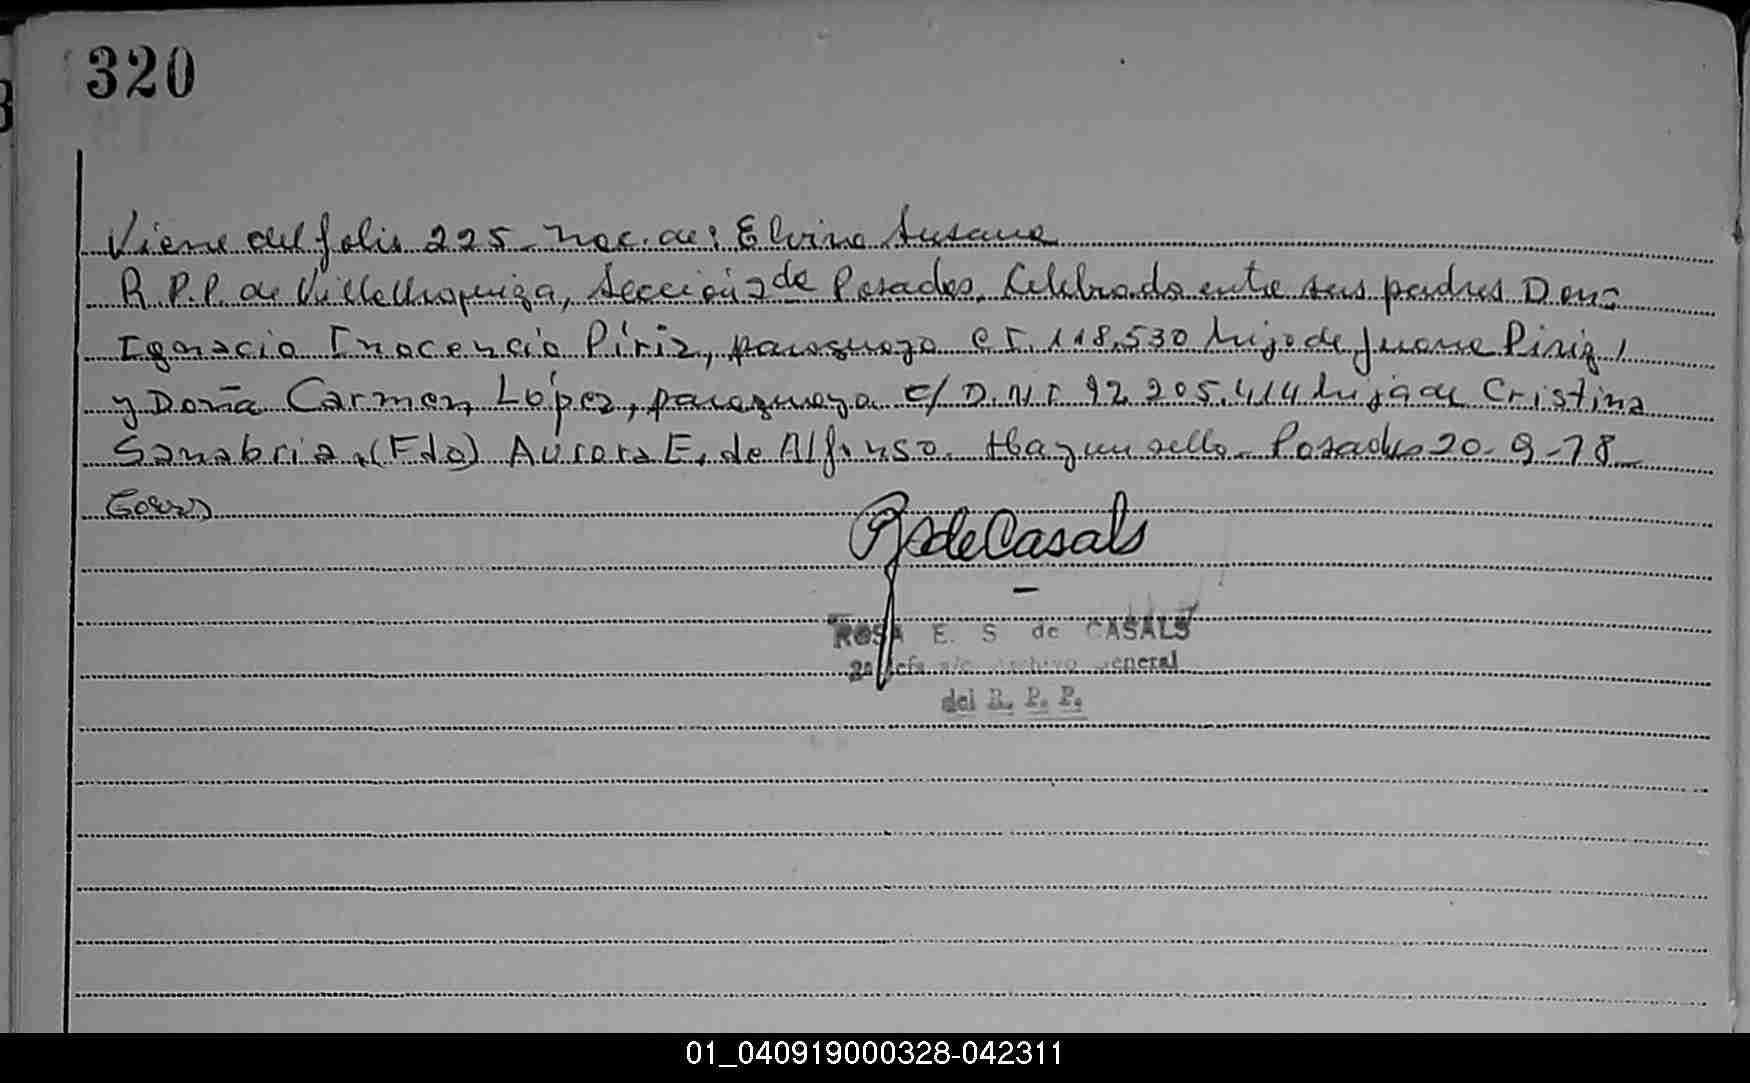 320
Viene del folio 225. Nac. de: Elvina Susana
R.P.P. de Villa Urquiza, Sección 2da de Posadas. Celebrado entre sus padres Don:
Ignacio Inocencio Píriz, paraguayo C.I. 118.530 hijo de Juana Píriz,
y Doña Carmen López, paraguaya c/ D.N.I 92.205.414 hija de Cristina
Sanabria. (Fdo) Aurora E. de Alfonso. Hay un sello. Posadas 20-9-78
RSdeCasals
ROSA E. S de CASALS
2a Jefa a/c Archivo General
del R. P. P.
01_040919000328-042311